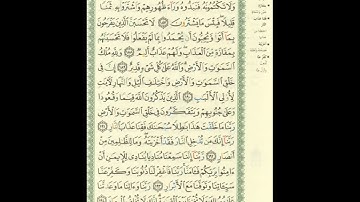 وَلَا تَكْتُمُونَهُۥ فَنَبَذُوهُ وَرَآءَ ظُهُورِهِمْ وَٱشْتَرَوْا۟ بِهِۦ ثَمَنًا
قَلِيلًا فَبِئْسَ مَا يَشْتَرُونَ ١٨٧ لَا تَحْسَبَنَّ ٱلَّذِينَ يَفْرَحُونَ
بِمَآ أَتَوا۟ وَّيُحِبُّونَ أَن يُحْمَدُوا۟ بِمَا لَمْ يَفْعَلُوا۟ فَلَا تَحْسَبَنَّهُم
بِمَفَازَةٍ مِّنَ ٱلْعَذَابِ وَلَهُمْ عَذَابٌ أَلِيمٌ ١٨٨ وَلِلَّهِ مُلْكُ
ٱلسَّمَٰوَٰتِ وَٱلْأَرْضِ وَٱللَّهُ عَلَىٰ كُلِّ شَىْءٍ قَدِيرٌ ١٨٩ إِنَّ فِى
خَلْقِ ٱلسَّمَٰوَٰتِ وَٱلْأَرْضِ وَٱخْتِلَٰفِ ٱلَّيْلِ وَٱلنَّهَارِ لَءَايَٰتٍ
لِّأُو۟لِى ٱلْأَلْبَٰبِ ١٩٠ ٱلَّذِينَ يَذْكُرُونَ ٱللَّهَ قِيَٰمًا وَقُعُودًا
وَعَلَىٰ جُنُوبِهِمْ وَيَتَفَكَّرُونَ فِى خَلْقِ ٱلسَّمَٰوَٰتِ وَٱلْأَرْضِ
رَبَّنَا مَا خَلَقْتَ هَٰذَا بَٰطِلًا سُبْحَٰنَكَ فَقِنَا عَذَابَ ٱلنَّارِ ١٩١
رَبَّنَآ إِنَّكَ مَن تُدْخِلِ ٱلنَّارَ فَقَدْ أَخْزَيْتَهُۥ وَمَا لِلظَّٰلِمِينَ مِنْ
أَنصَارٍ ١٩٢ رَّبَّنَآ إِنَّنَا سَمِعْنَا مُنَادِيًا يُنَادِى لِلْإِيمَٰنِ أَنْ
ءَامِنُوا۟ بِرَبِّكُمْ فَـَٔامَنَّا رَبَّنَا فَٱغْفِرْ لَنَا ذُنُوبَنَا وَكَفِّرْ عَنَّا
سَيِّـَٔاتِنَا وَتَوَفَّنَا مَعَ ٱلْأَبْرَارِ ١٩٣ رَبَّنَا وَءَاتِنَا مَا وَعَدتَّنَا